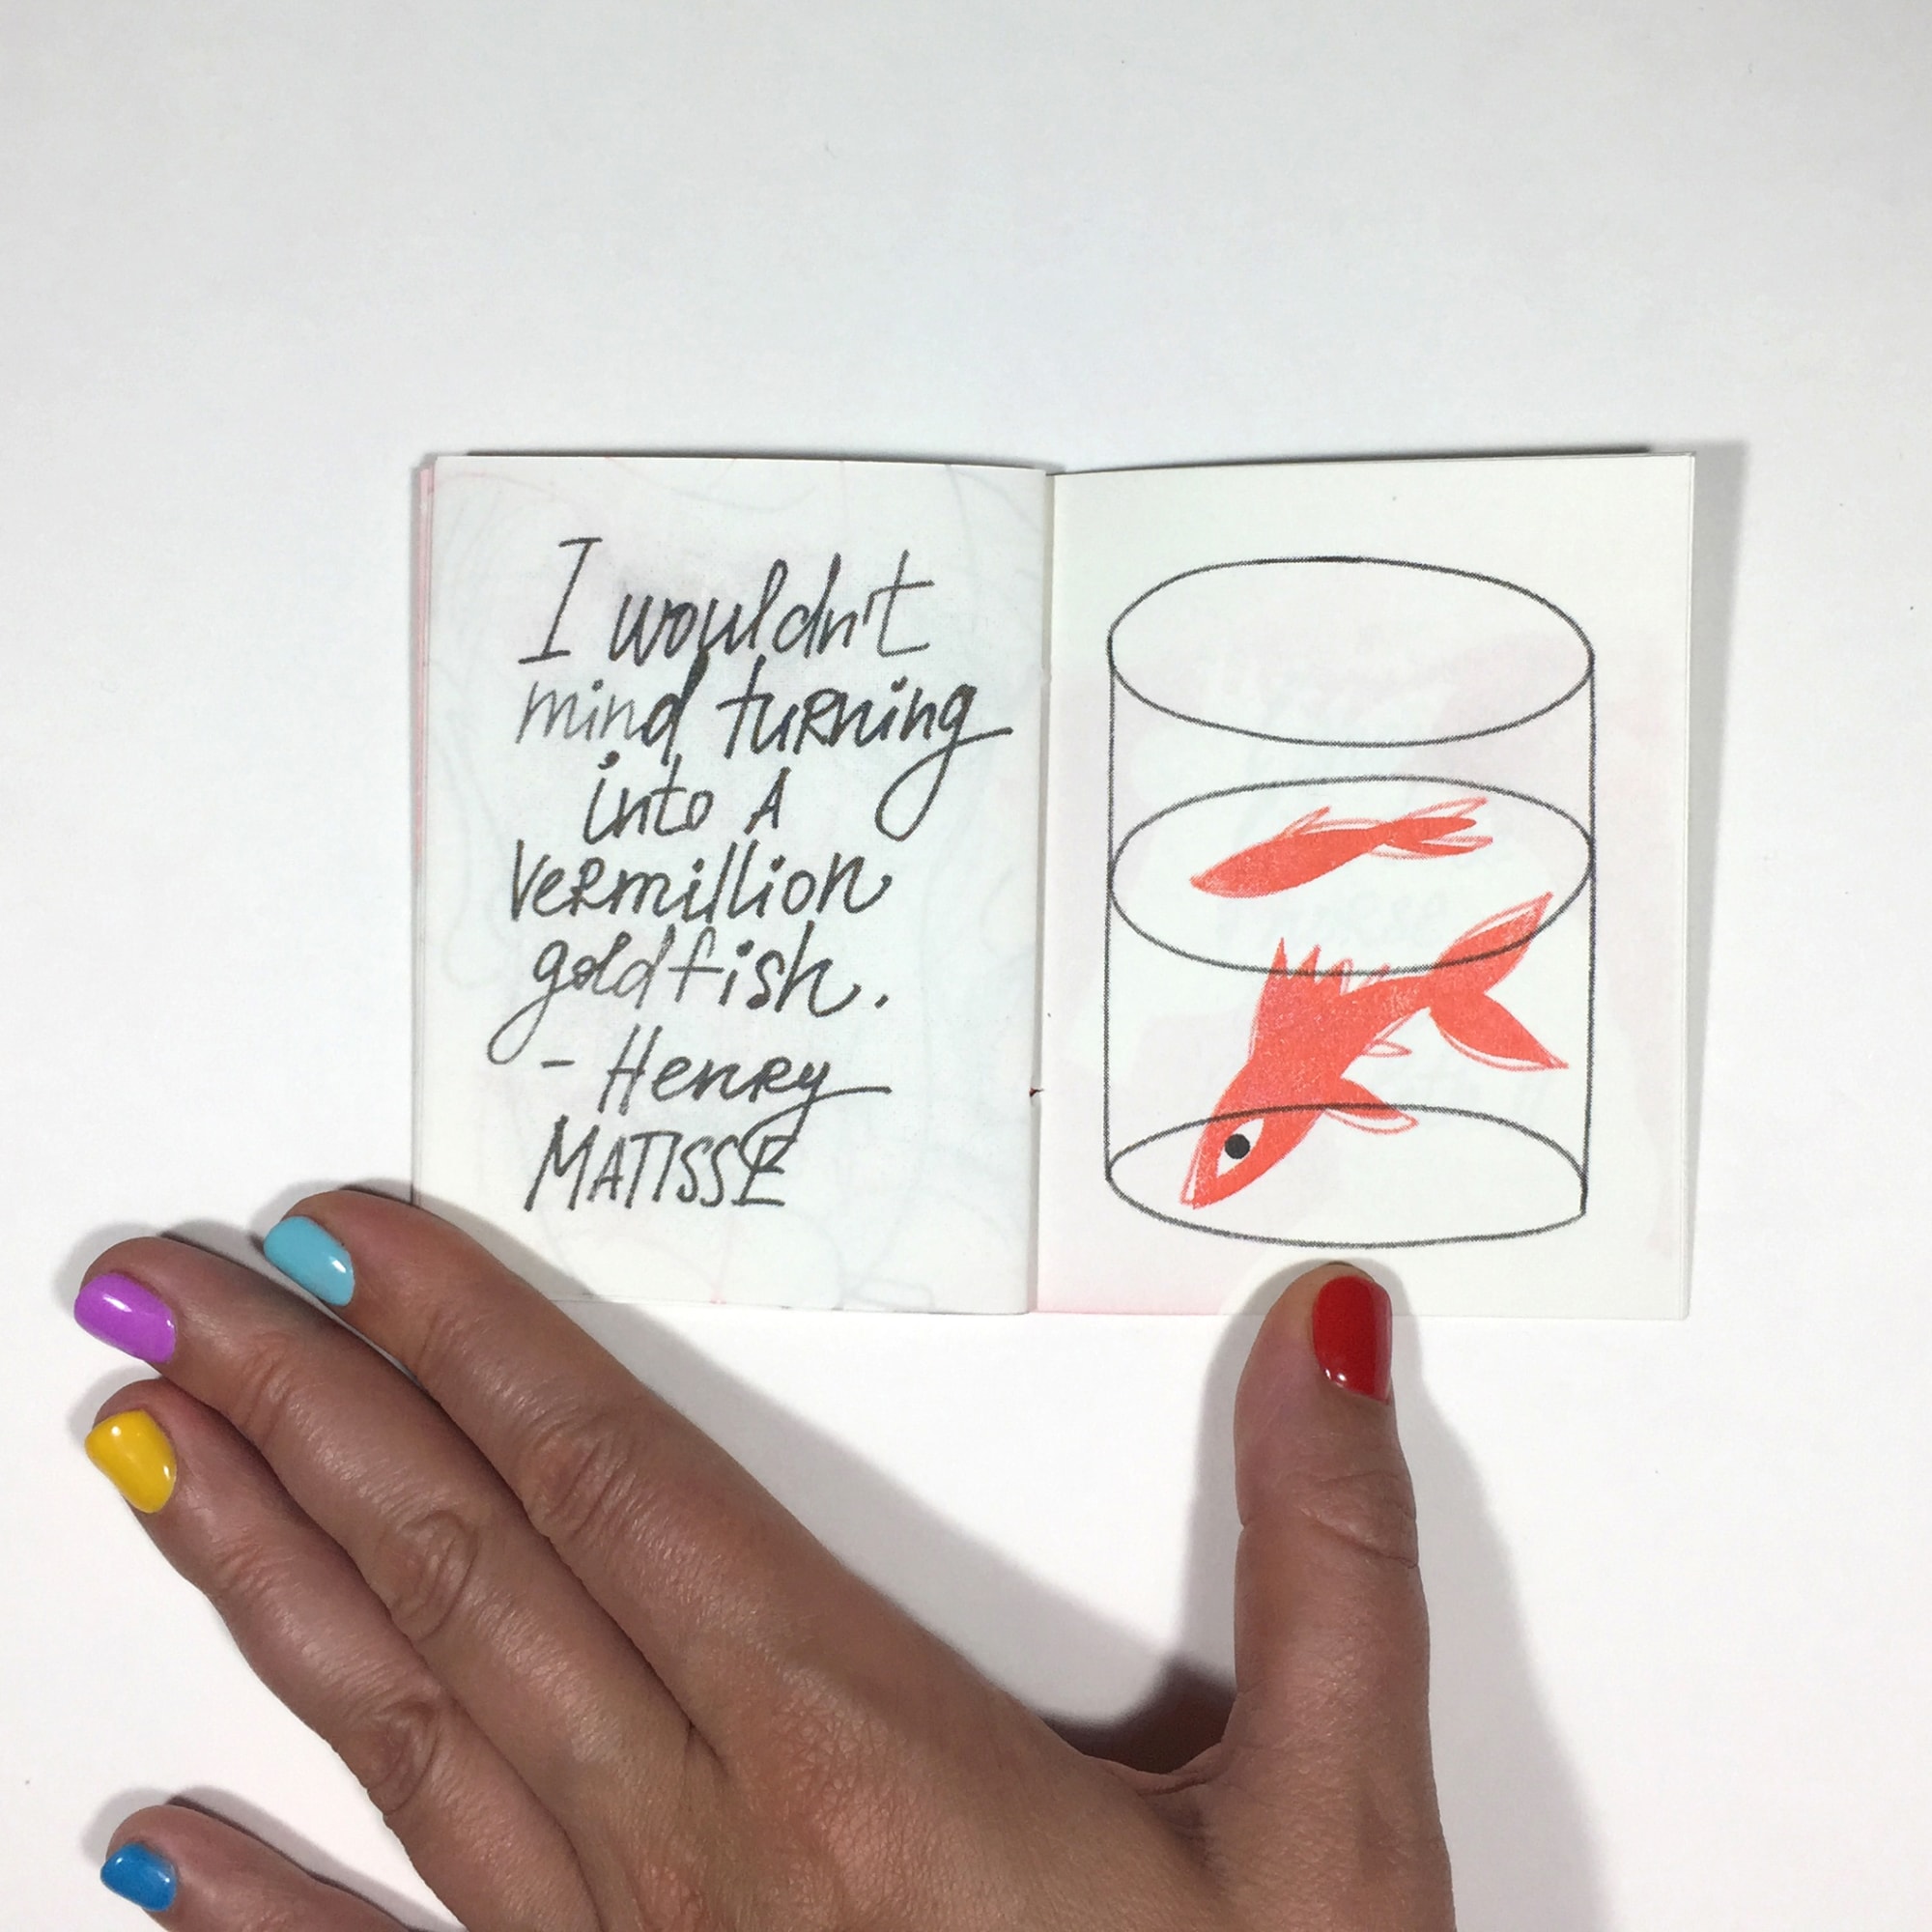 I wouldn't
mind turning
into A
vermillion
goldfish.
- Henry
MATISSE